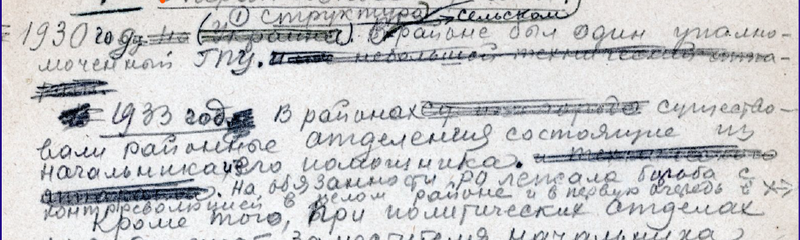 ① структура сельском
1930 году на (Украина). В районе был один уполно-
моченный ГПУ. и небольшой технический аппа-
рат.
1933 год В районах существо-
вали районные отделения состоящие из
начальника его помощника. и технического
аппарата. На обязанности РО лежала борьба с
контрреволюцией в целом районе и в первую очередь в
Кроме того, при политических отделах
заместителя начальника